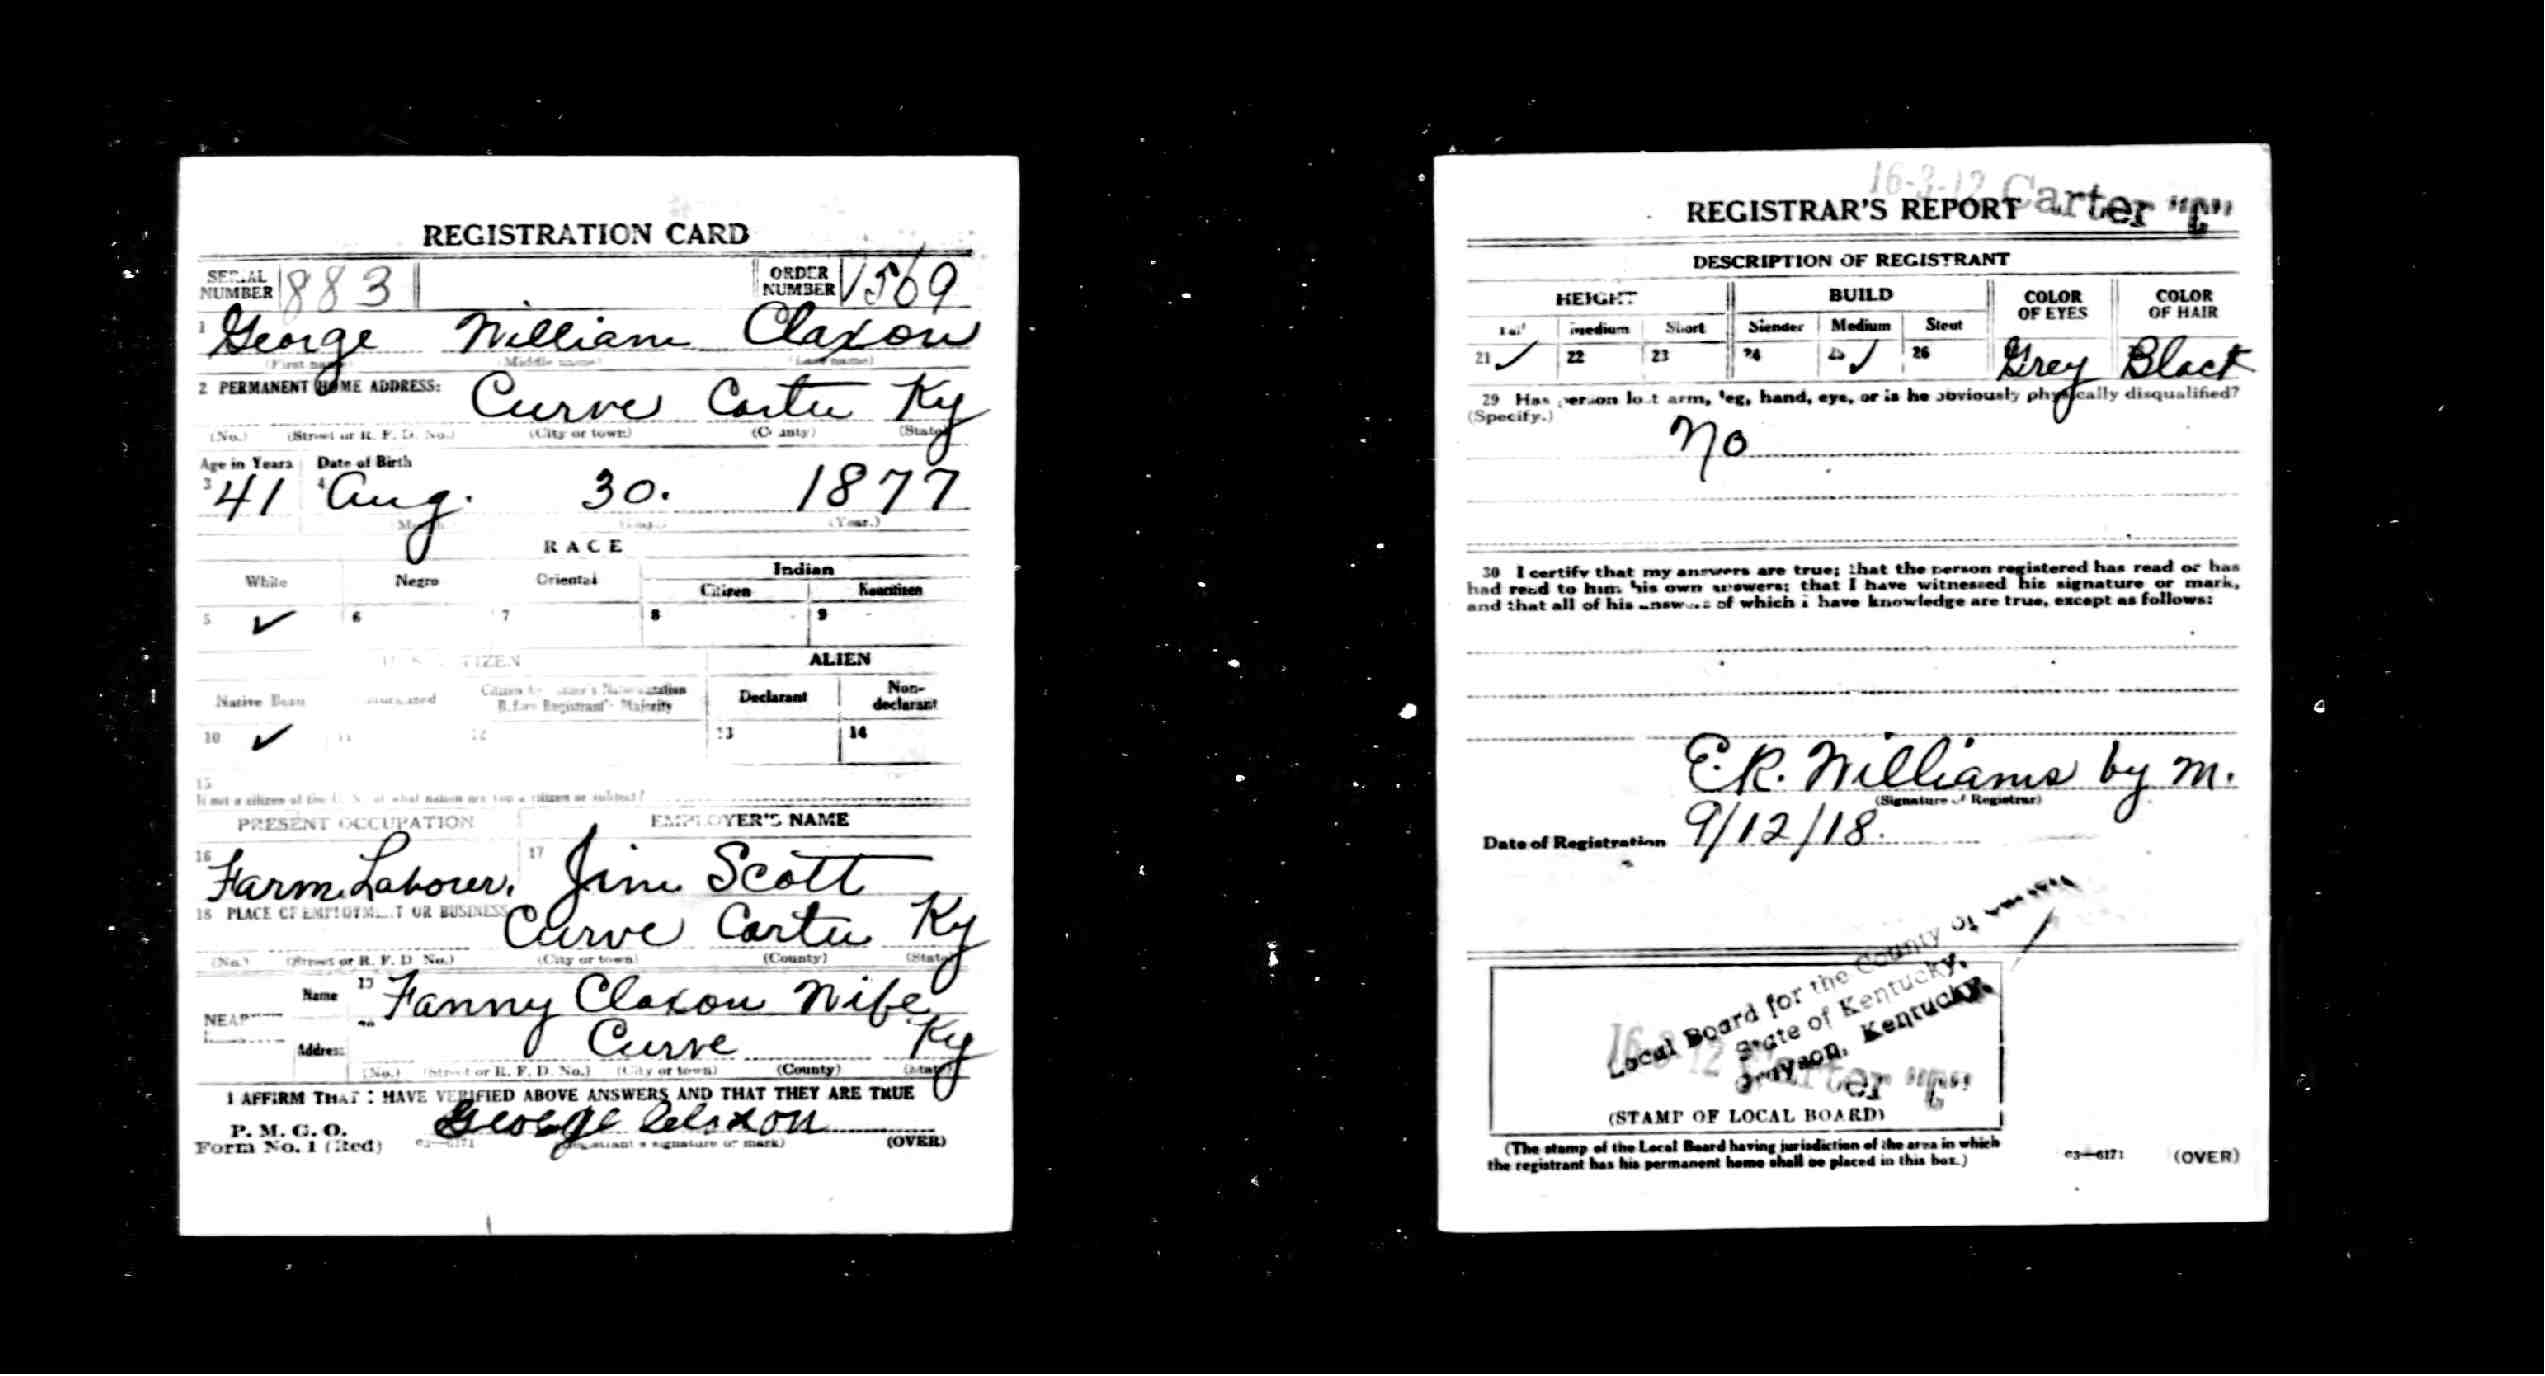 REGISTRATION CARD
SERIAL NUMBER 883 ORDER NUMBER 1569
1 George William Claxon
(First name) (Middle name) (Last name)
2 PERMANENT HOME ADDRESS: Curve Carter Ky
(No.) (Street or R. F. D. No.) (City or town) (County) (State)
Age in Years Date of Birth
3 41 4 Aug. 30. 1877
(Month) (Day) (Year.)
RACE
White Negro Oriental Indian
Citizen Noncitizen
5 ✓ 6 7 8 9
U. S. CITIZEN ALIEN
Native Born Naturalized Citizen by Father's Naturalization Before Registrant's Majority Declarant Non-declarant
10 ✓ 11 12 13 14
15
If not a citizen of the U. S., of what nation are you a citizen or subject?
PRESENT OCCUPATION EMPLOYER'S NAME
16 Farm Laborer. 17 Jim Scott
18 PLACE OF EMPLOYMENT OR BUSINESS Curve Carter Ky
(No.) (Street or R. F. D. No.) (City or town) (County) (State)
NEAREST Name 19 Fanny Claxon Wife
Address 20 Curve Ky
(No.) (Street or R. F. D. No.) (City or town) (County) (State)
I AFFIRM THAT I HAVE VERIFIED ABOVE ANSWERS AND THAT THEY ARE TRUE
P. M. G. O.
Form No. 1 (Red) 03—6171 George Claxon (OVER)
(Registrant's signature or mark)
16-3-12 Carter "C"
REGISTRAR'S REPORT
DESCRIPTION OF REGISTRANT
HEIGHT BUILD COLOR OF EYES COLOR OF HAIR
Tall Medium Short Slender Medium Stout
21 ✓ 22 23 24 25 ✓ 26 Grey Black
29 Has person lost arm, leg, hand, eye, or is he obviously physically disqualified?
(Specify.) No
30 I certify that my answers are true; that the person registered has read or has
had read to him his own answers; that I have witnessed his signature or mark,
and that all of his answers of which I have knowledge are true, except as follows:
E. R. Williams by M.
(Signature of Registrar)
Date of Registration 9/12/18.
Local Board for the County of
State of Kentucky,
Grayson, Kentucky.
16-3-12 Carter "C"
(STAMP OF LOCAL BOARD)
(The stamp of the Local Board having jurisdiction of the area in which
the registrant has his permanent home shall be placed in this box.)
03—6171 (OVER)